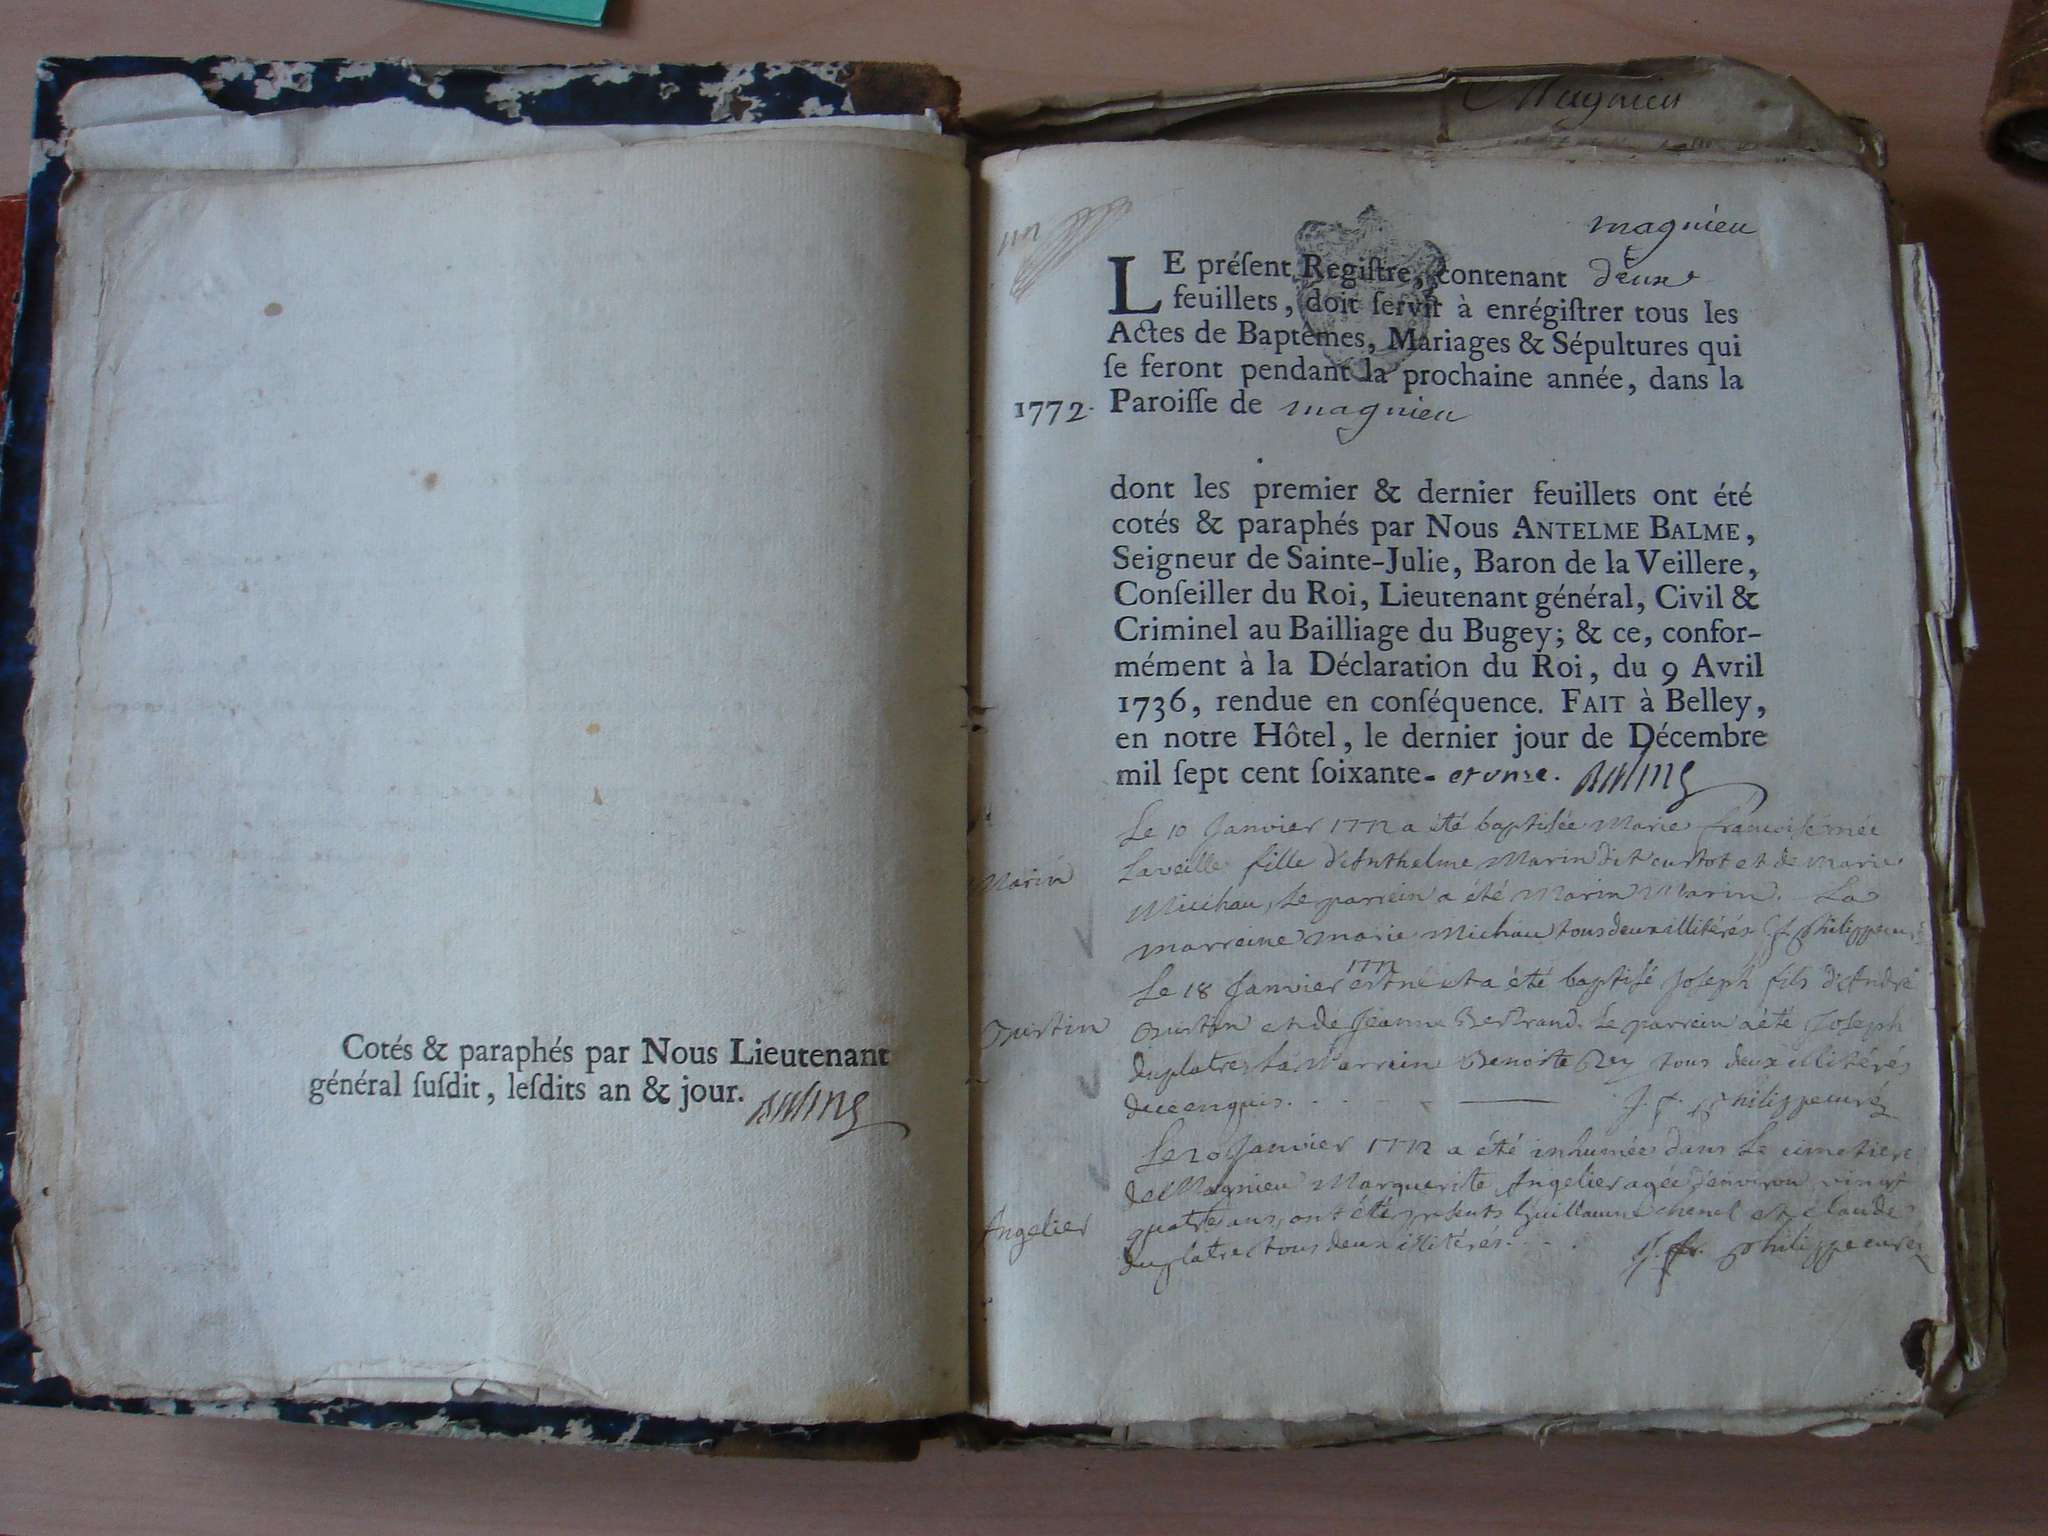 Cotés & paraphés par Nous Lieutenant
général ſuſdit, leſdits an & jour.
Magnieu
un
magnieu
LE préſent Regiſtre, contenant deux
feuillets, doit ſervir à enrégiſtrer tous les
Actes de Baptêmes, Mariages & Sépultures qui
ſe feront pendant la prochaine année, dans la
1772. Paroiſſe de magnieu
dont les premier & dernier feuillets ont été
cotés & paraphés par Nous ANTELME BALME,
Seigneur de Sainte-Julie, Baron de la Veillere,
Conſeiller du Roi, Lieutenant général, Civil &
Criminel au Bailliage du Bugey; & ce, confor-
mément à la Déclaration du Roi, du 9 Avril
1736, rendue en conſéquence. FAIT à Belley,
en notre Hôtel, le dernier jour de Décembre
mil ſept cent ſoixante- et onze.
Le 10 Janvier 1772 a été baptisée Marie francoise née
Marin
la veille fille d'Anthelme Marin dit curtot et de marie
Michau, le parrein a été Marin Marin. La
marreine marie Michau tous deux illitérés Philippe curé
Le 18 Janvier 1772 est né et a été baptisé Joseph fils d'André
et de Jeanne Bertrand. le parrein a été Joseph
duplatre la Marrein Benoite Rey tous deux illitérés
de ce enquis. J. f. Philippe curé
Le 20 Janvier 1772 a été inhumée dans le cimetiere
de Magnieu Marguerite Angelier agée d'environ vingt
Angelier
quatre ans, ont été présents Guillaume et claude
duplatre tous deux illitérés. J. fr. Philippe curé